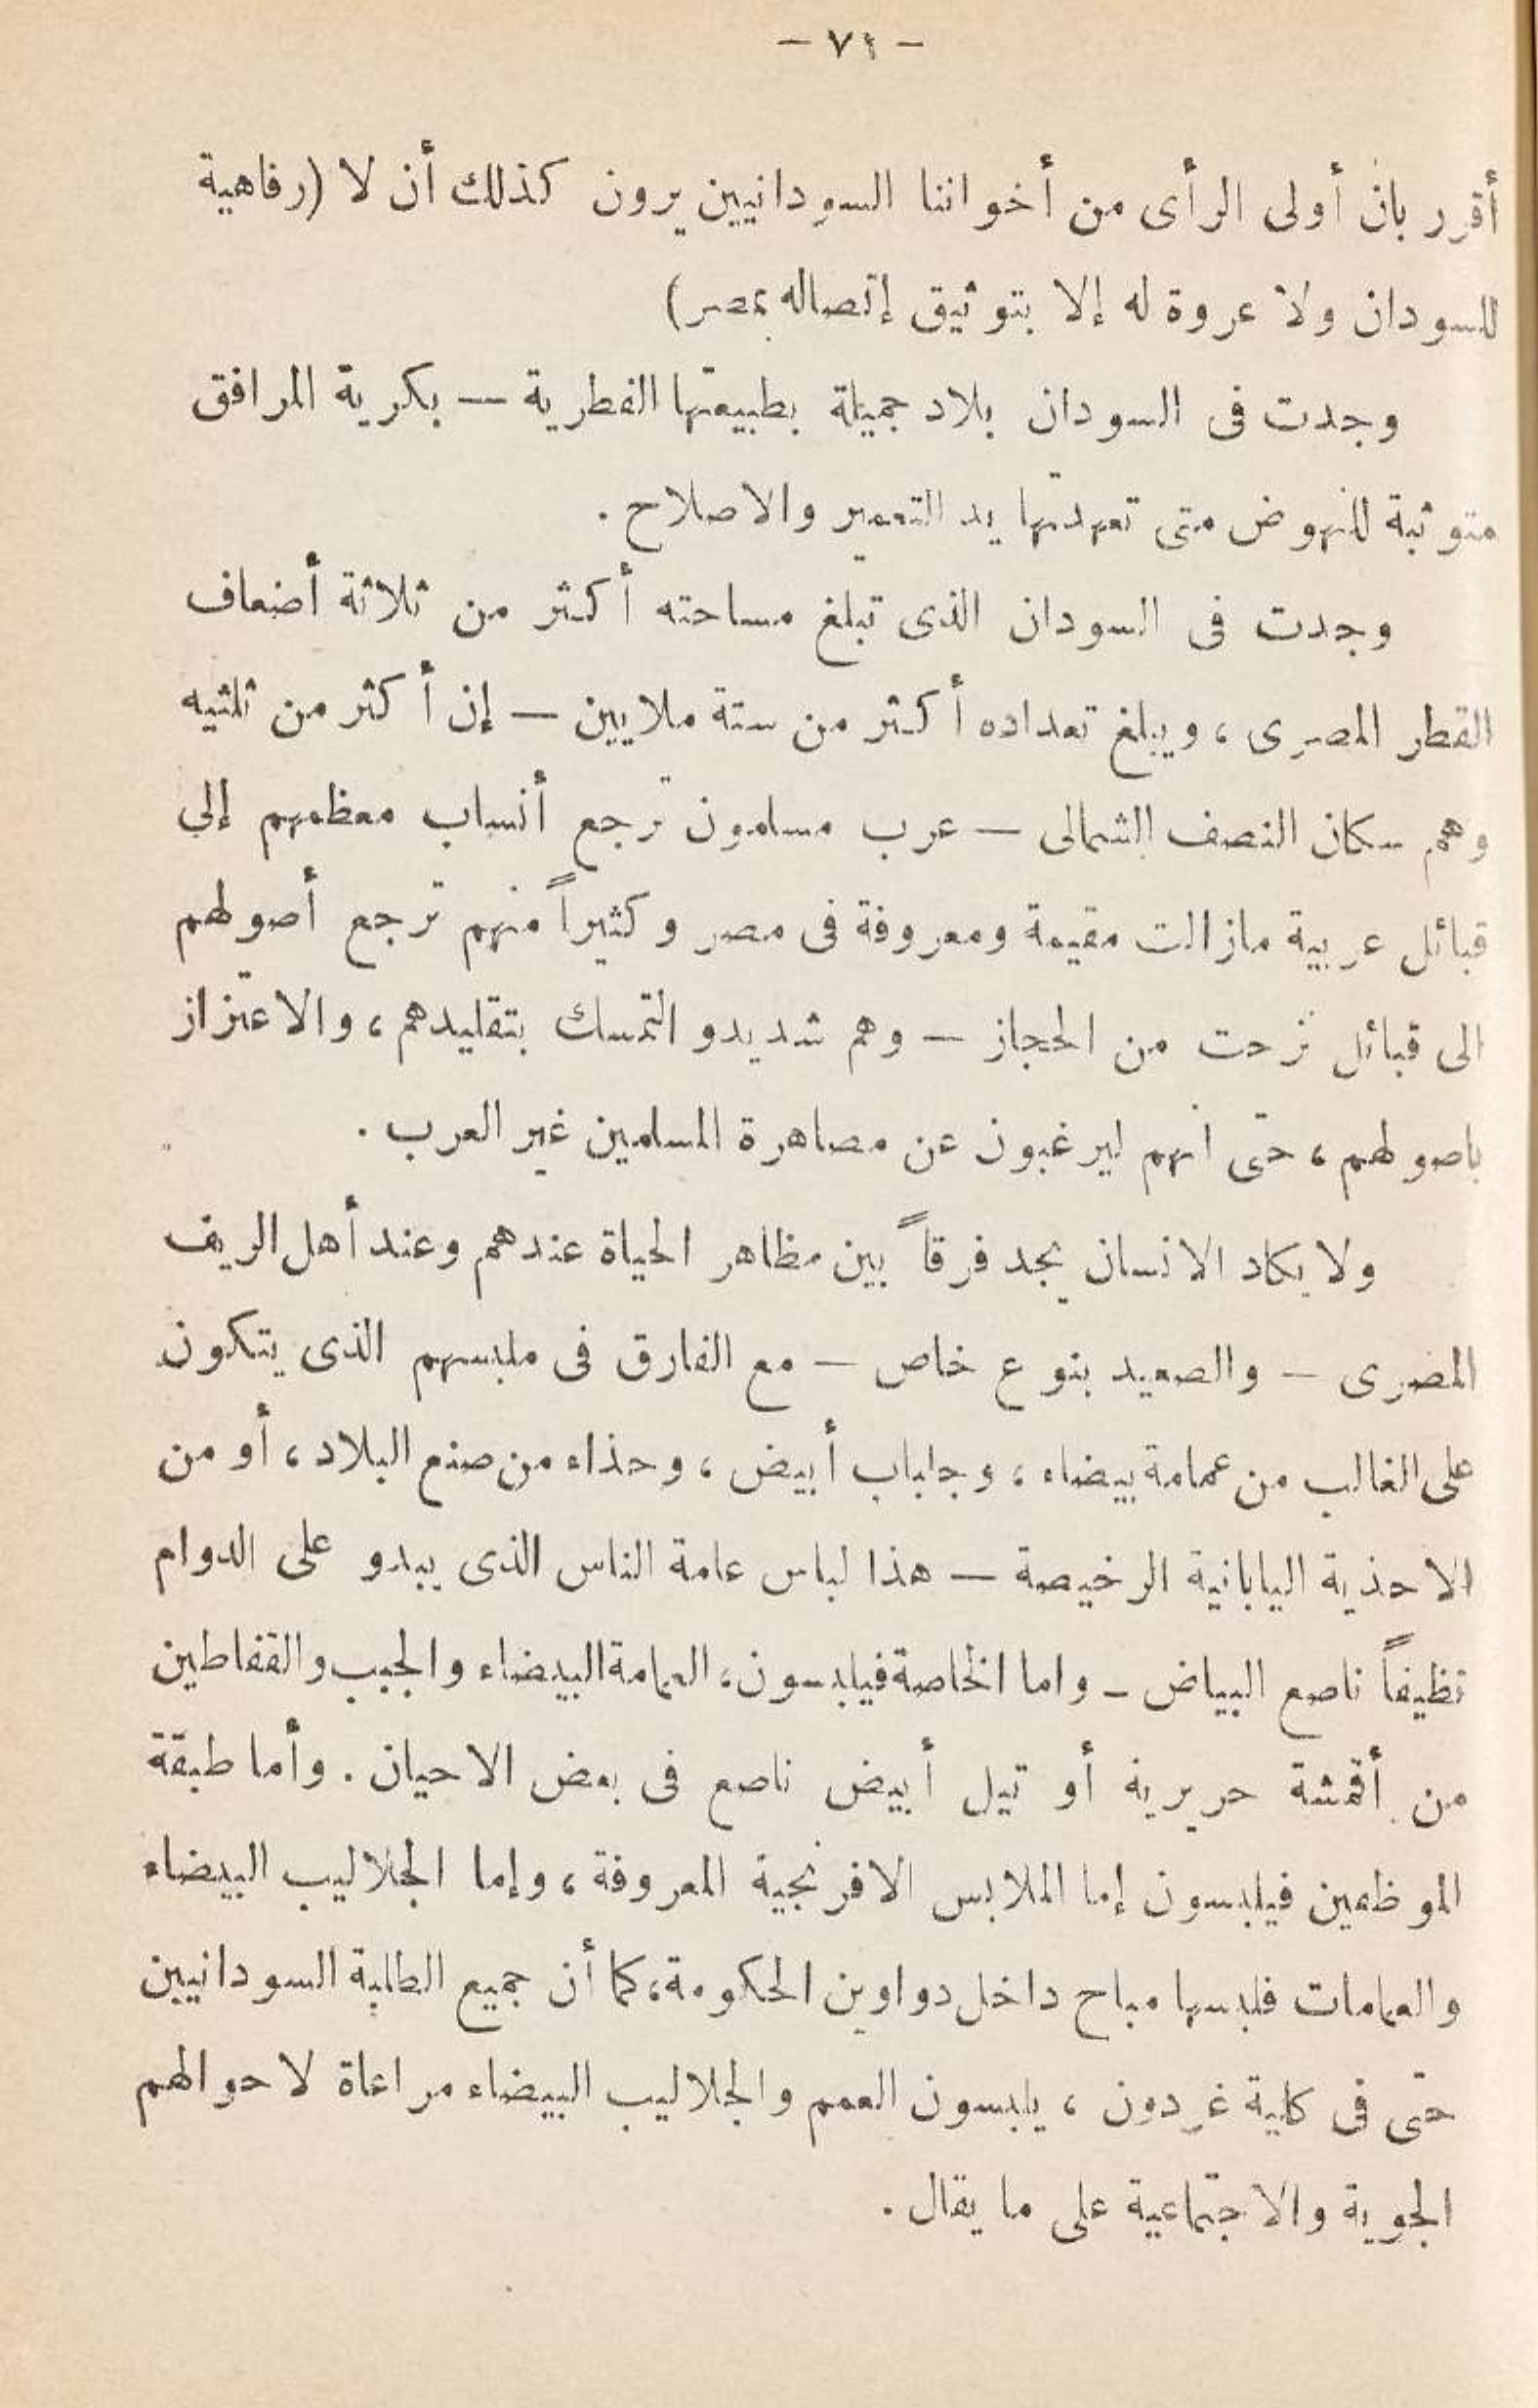 — ٧٤ —
أقرر بان أولى الرأى من أخواننا السودانيين يرون كذلك أن لا (رفاهية
للسودان ولا عروة له إلا بتوثيق إتصاله بمصر)
وجدت فى السودان بلاد جميلة بطبيعتها الفطرية — بكرية المرافق
متوثبة للنهوض متى تعهدتها يد التعمير والاصلاح .
وجدت فى السودان الذى تبلغ مساحته أكثر من ثلاثة أضعاف
القطر المصرى ، ويبلغ تعداده أكثر من ستة ملايين — إن أكثر من ثلثيه
وهم سكان النصف الشمالى — عرب مسلمون ترجع أنساب معظمهم إلى
قبائل عربية مازالت مقيمة ومعروفة فى مصر وكثيراً منهم ترجع أصولهم
الى قبائل نزحت من الحجاز — وهم شديدو التمسك بتقليدهم ، والاعتزاز
باصولهم ، حتى انهم ليرغبون عن مصاهرة المسلمين غير العرب .
ولا يكاد الانسان يجد فرقاً بين مظاهر الحياة عندهم وعند أهل الريف
المصرى — والصعيد بنوع خاص — مع الفارق فى ملبسهم الذى يتكون
على الغالب من عمامة بيضاء ، وجلباب أبيض ، وحذاء من صنع البلاد ، أو من
الاحذية اليابانية الرخيصة — هذا لباس عامة الناس الذى يبدو على الدوام
نظيفاً ناصع البياض — واما الخاصة فيلبسون ، العمامة البيضاء والجبب والقفاطين
من أقمشة حريرية أو تيل أبيض ناصع فى بعض الاحيان . وأما طبقة
الموظفين فيلبسون إما الملابس الافرنجية المعروفة ، وإما الجلاليب البيضاء
والعمامات فلبسها مباح داخل دواوين الحكومة ، كما أن جميع الطلبة السودانيين
حتى فى كلية غردون ، يلبسون العمم والجلاليب البيضاء مراعاة لاحوالهم
الجوية والاجتماعية على ما يقال .